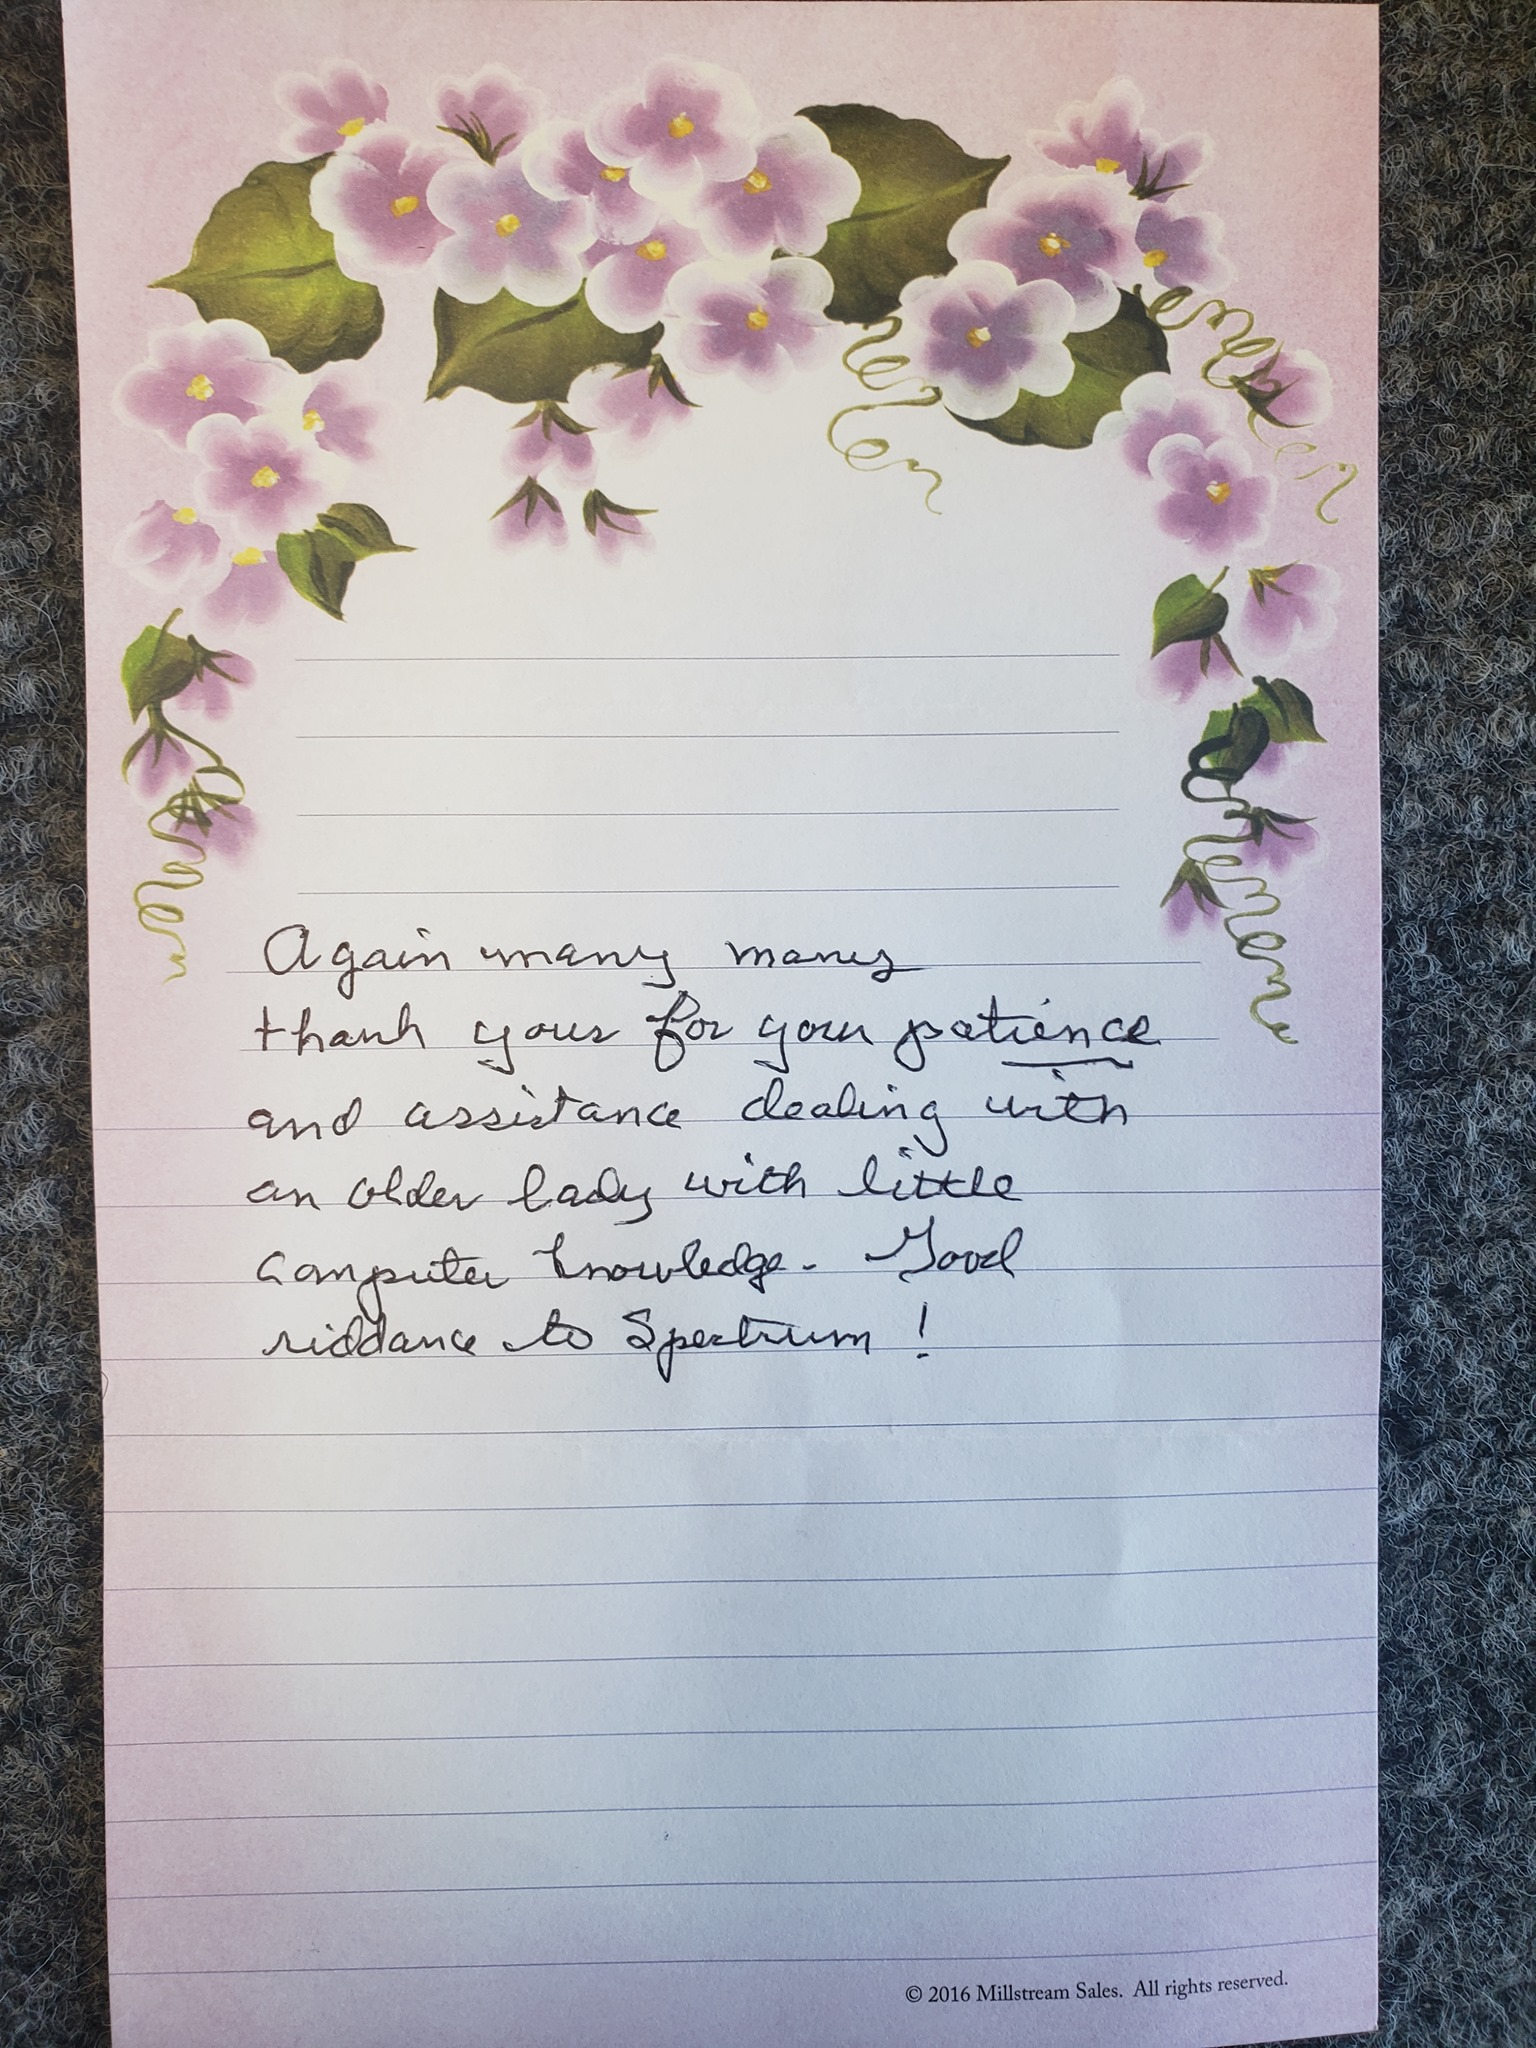 Again many many
thank yous for your patience
and assistance dealing with
an older lady with little
computer knowledge. Good
riddance to Spectrum!
© 2016 Millstream Sales. All rights reserved.